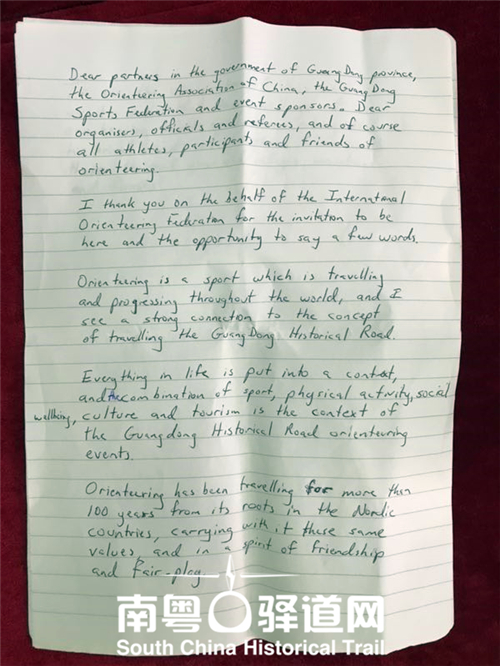 Dear partners in the government of GuangDong province,
the Orienteering Association of China, the GuangDong
Sports Federation and event sponsors. Dear
organisers, officials and referees, and of course
all athletes, participants and friends of
orienteering.
I thank you on the behalf of the International
Orienteering Federation for the invitation to be
here and the opportunity to say a few words.
Orienteering is a sport which is travelling
and progressing throughout the world, and I
see a strong connection to the concept
of travelling the GuangDong Historical Road.
Everything in life is put into a context,
and the combination of sport, physical activity, social
wellbeing, culture and tourism is the context of
the Guangdong Historical Road orienteering
events.
Orienteering has been travelling for more than
100 years from its roots in the Nordic
countries, carrying with it these same
values, and in a spirit of friendship
and fair-play.
南粤驿道网
South China Historical Trail